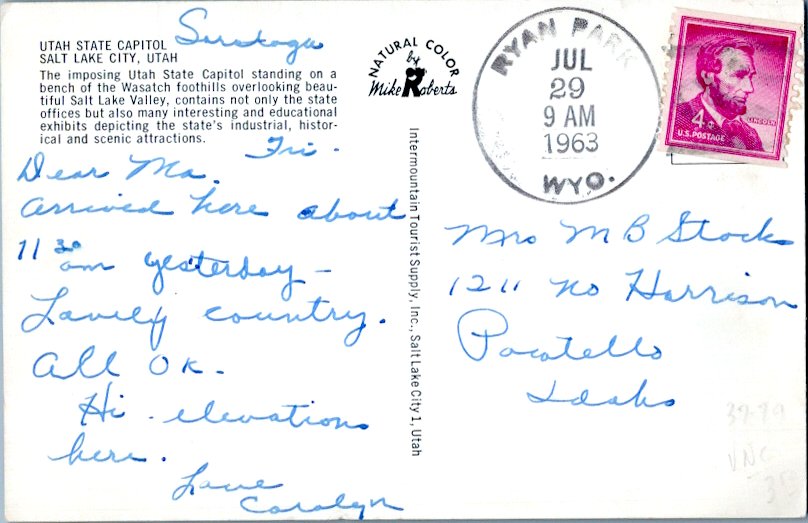 UTAH STATE CAPITOL Saratoga
SALT LAKE CITY, UTAH
The imposing Utah State Capitol standing on a
bench of the Wasatch foothills overlooking beau-
tiful Salt Lake Valley, contains not only the state
offices but also many interesting and educational
exhibits depicting the state's industrial, histor-
ical and scenic attractions.
Fri.
Dear Ma.
Arrived here about
11 30 am yesterday -
Lovely country.
All OK.
Hi elevations
here.
Love
Carolyn
NATURAL COLOR
by
Mike Roberts
Intermountain Tourist Supply, Inc., Salt Lake City 1, Utah
RYAN PARK
JUL
29
9 AM
1963
WYO.
4¢
LINCOLN
U.S. POSTAGE
Mrs M B Stocks
1211 No Harrison
Pocatello
Idaho
VNC